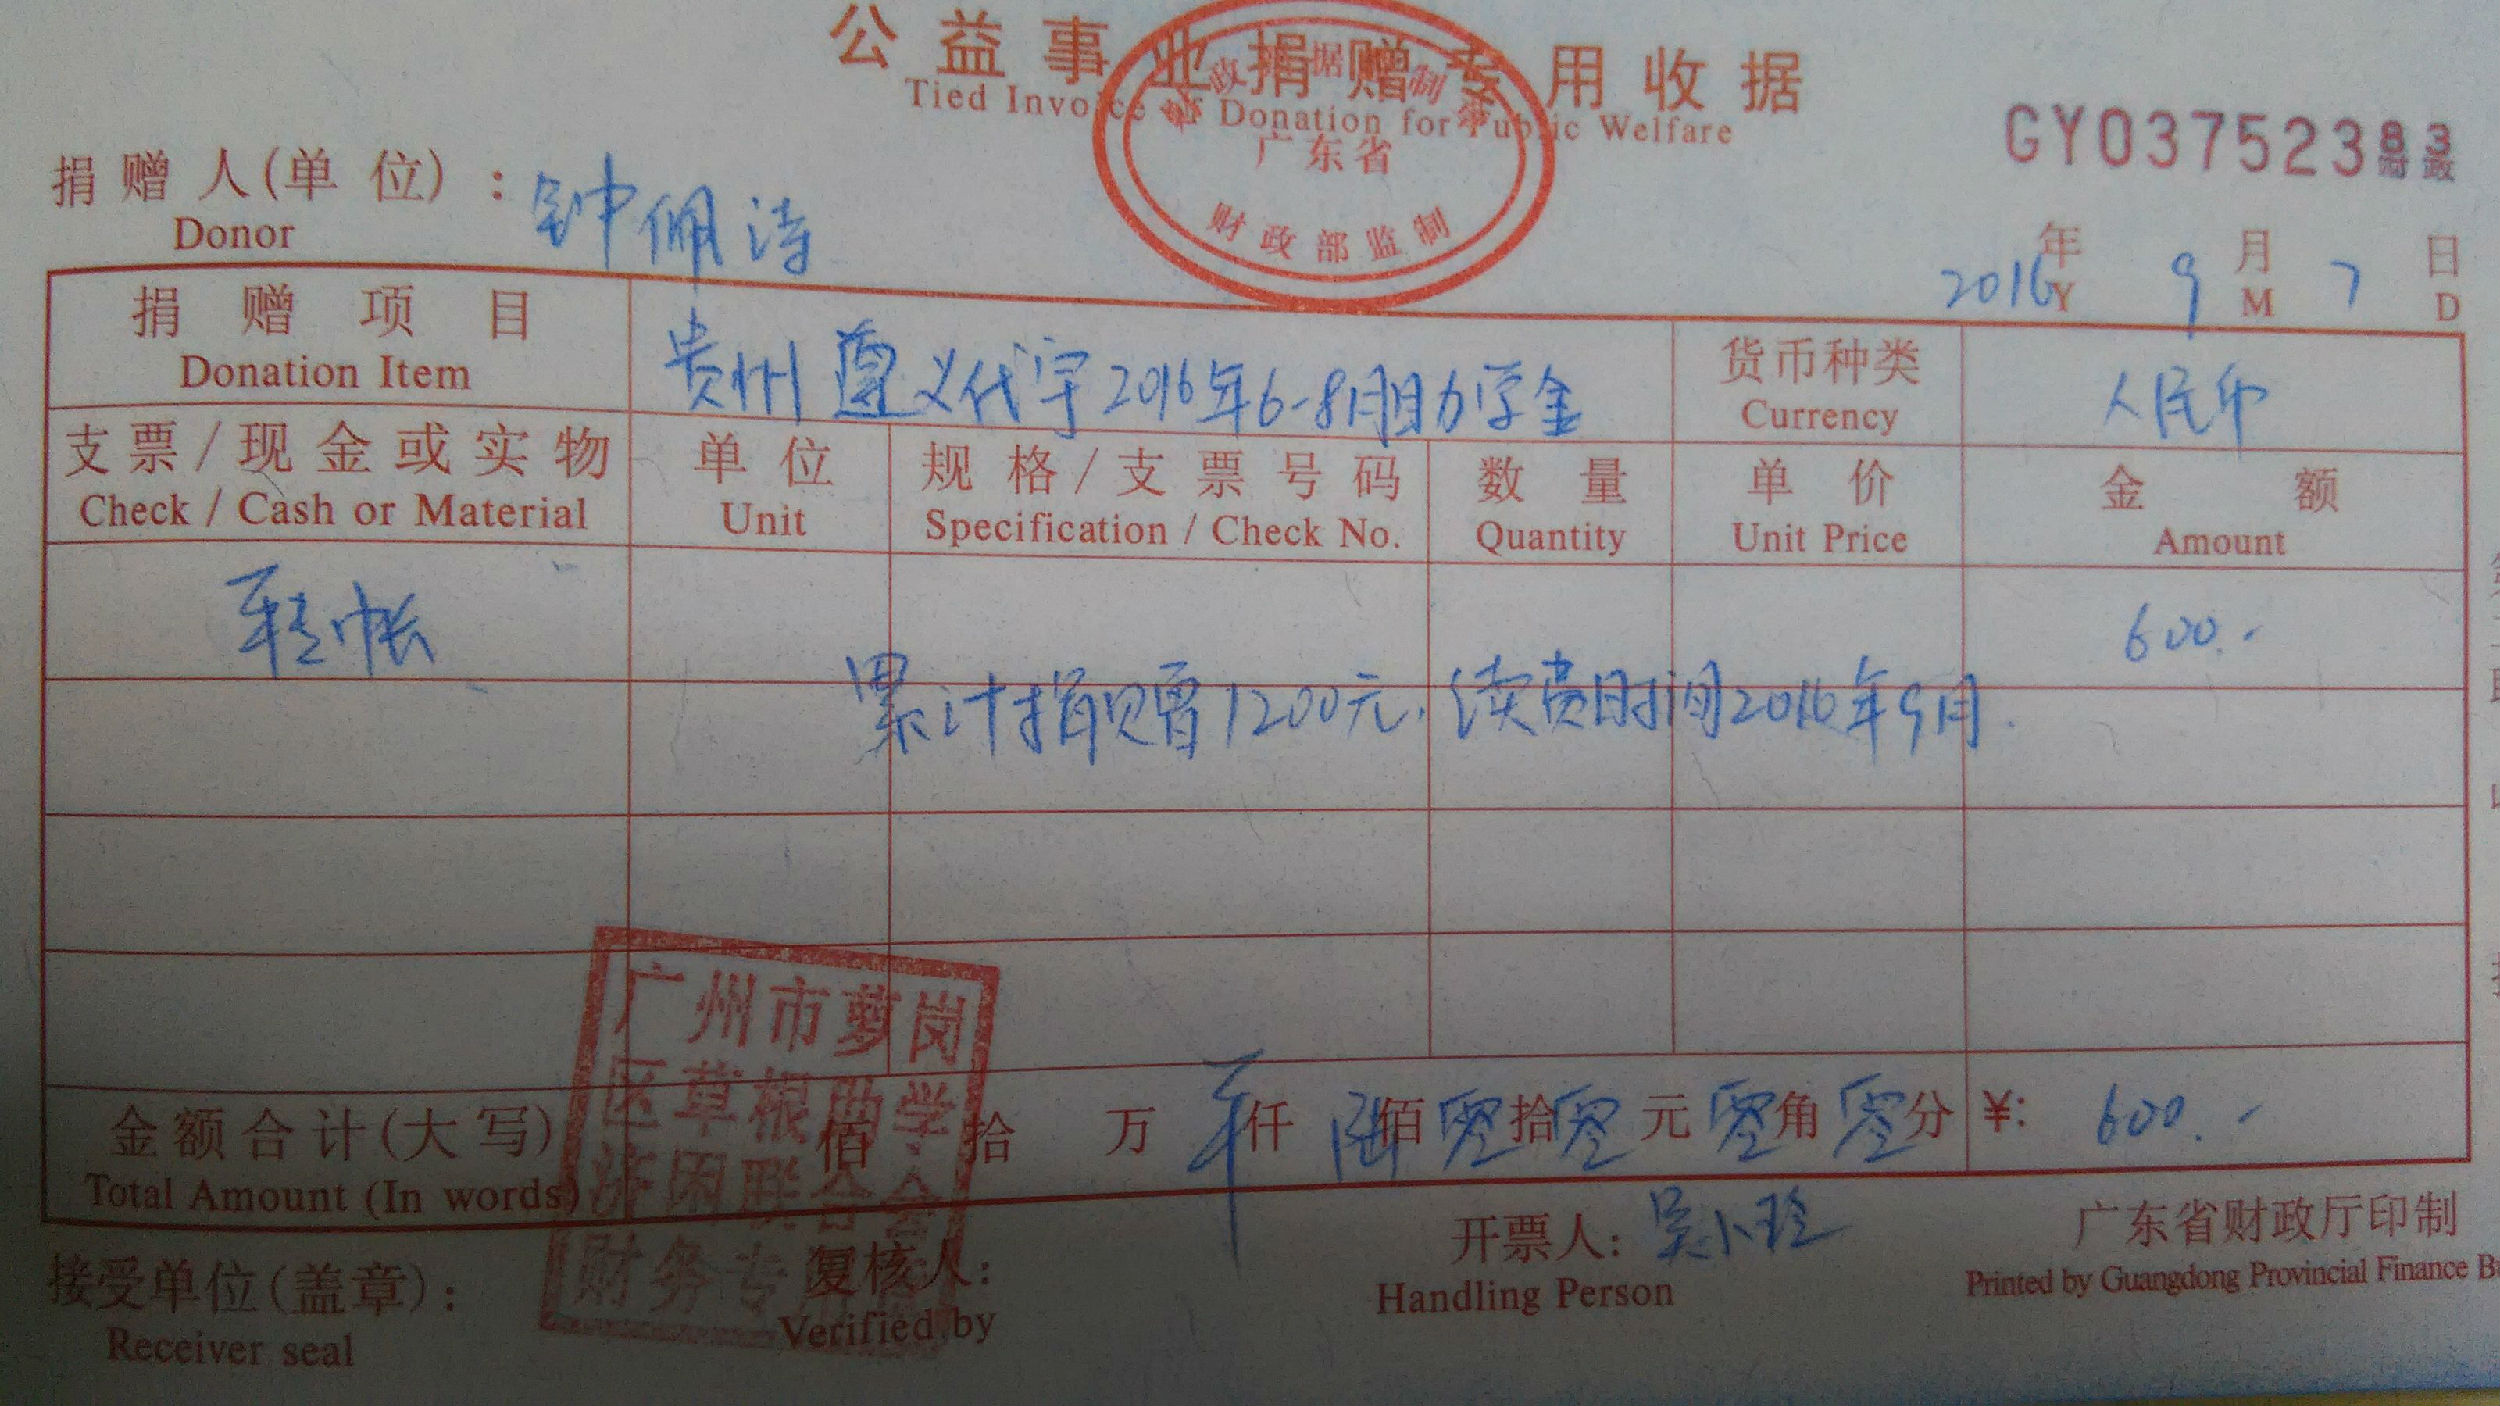 公益事业捐赠专用收据
Tied Invoice of Donation for Public Welfare
广东省
财政部监制
GY03752383
财政
捐赠人(单位):钟佩涛
Donor
2016年 9月 7日
Y M D
捐赠项目 贵州遵义代宇2016年6-8月助学金 货币种类 人民币
Donation Item Currency
支票/现金或实物 单位 规格/支票号码 数量 单价 金额
Check / Cash or Material Unit Specification / Check No. Quantity Unit Price Amount
转帐 600.-
累计捐赠1200元,续费时间2016年9月.
广州市萝岗
区草根助学
济困联合会
财务专用章
金额合计(大写) 佰 拾 万 仟 陆佰零拾零元零角零分 ¥: 600.-
Total Amount (In words)
接受单位(盖章): 复核人: 开票人:吴小玲 广东省财政厅印制
Receiver seal Verified by Handling Person Printed by Guangdong Provincial Finance B